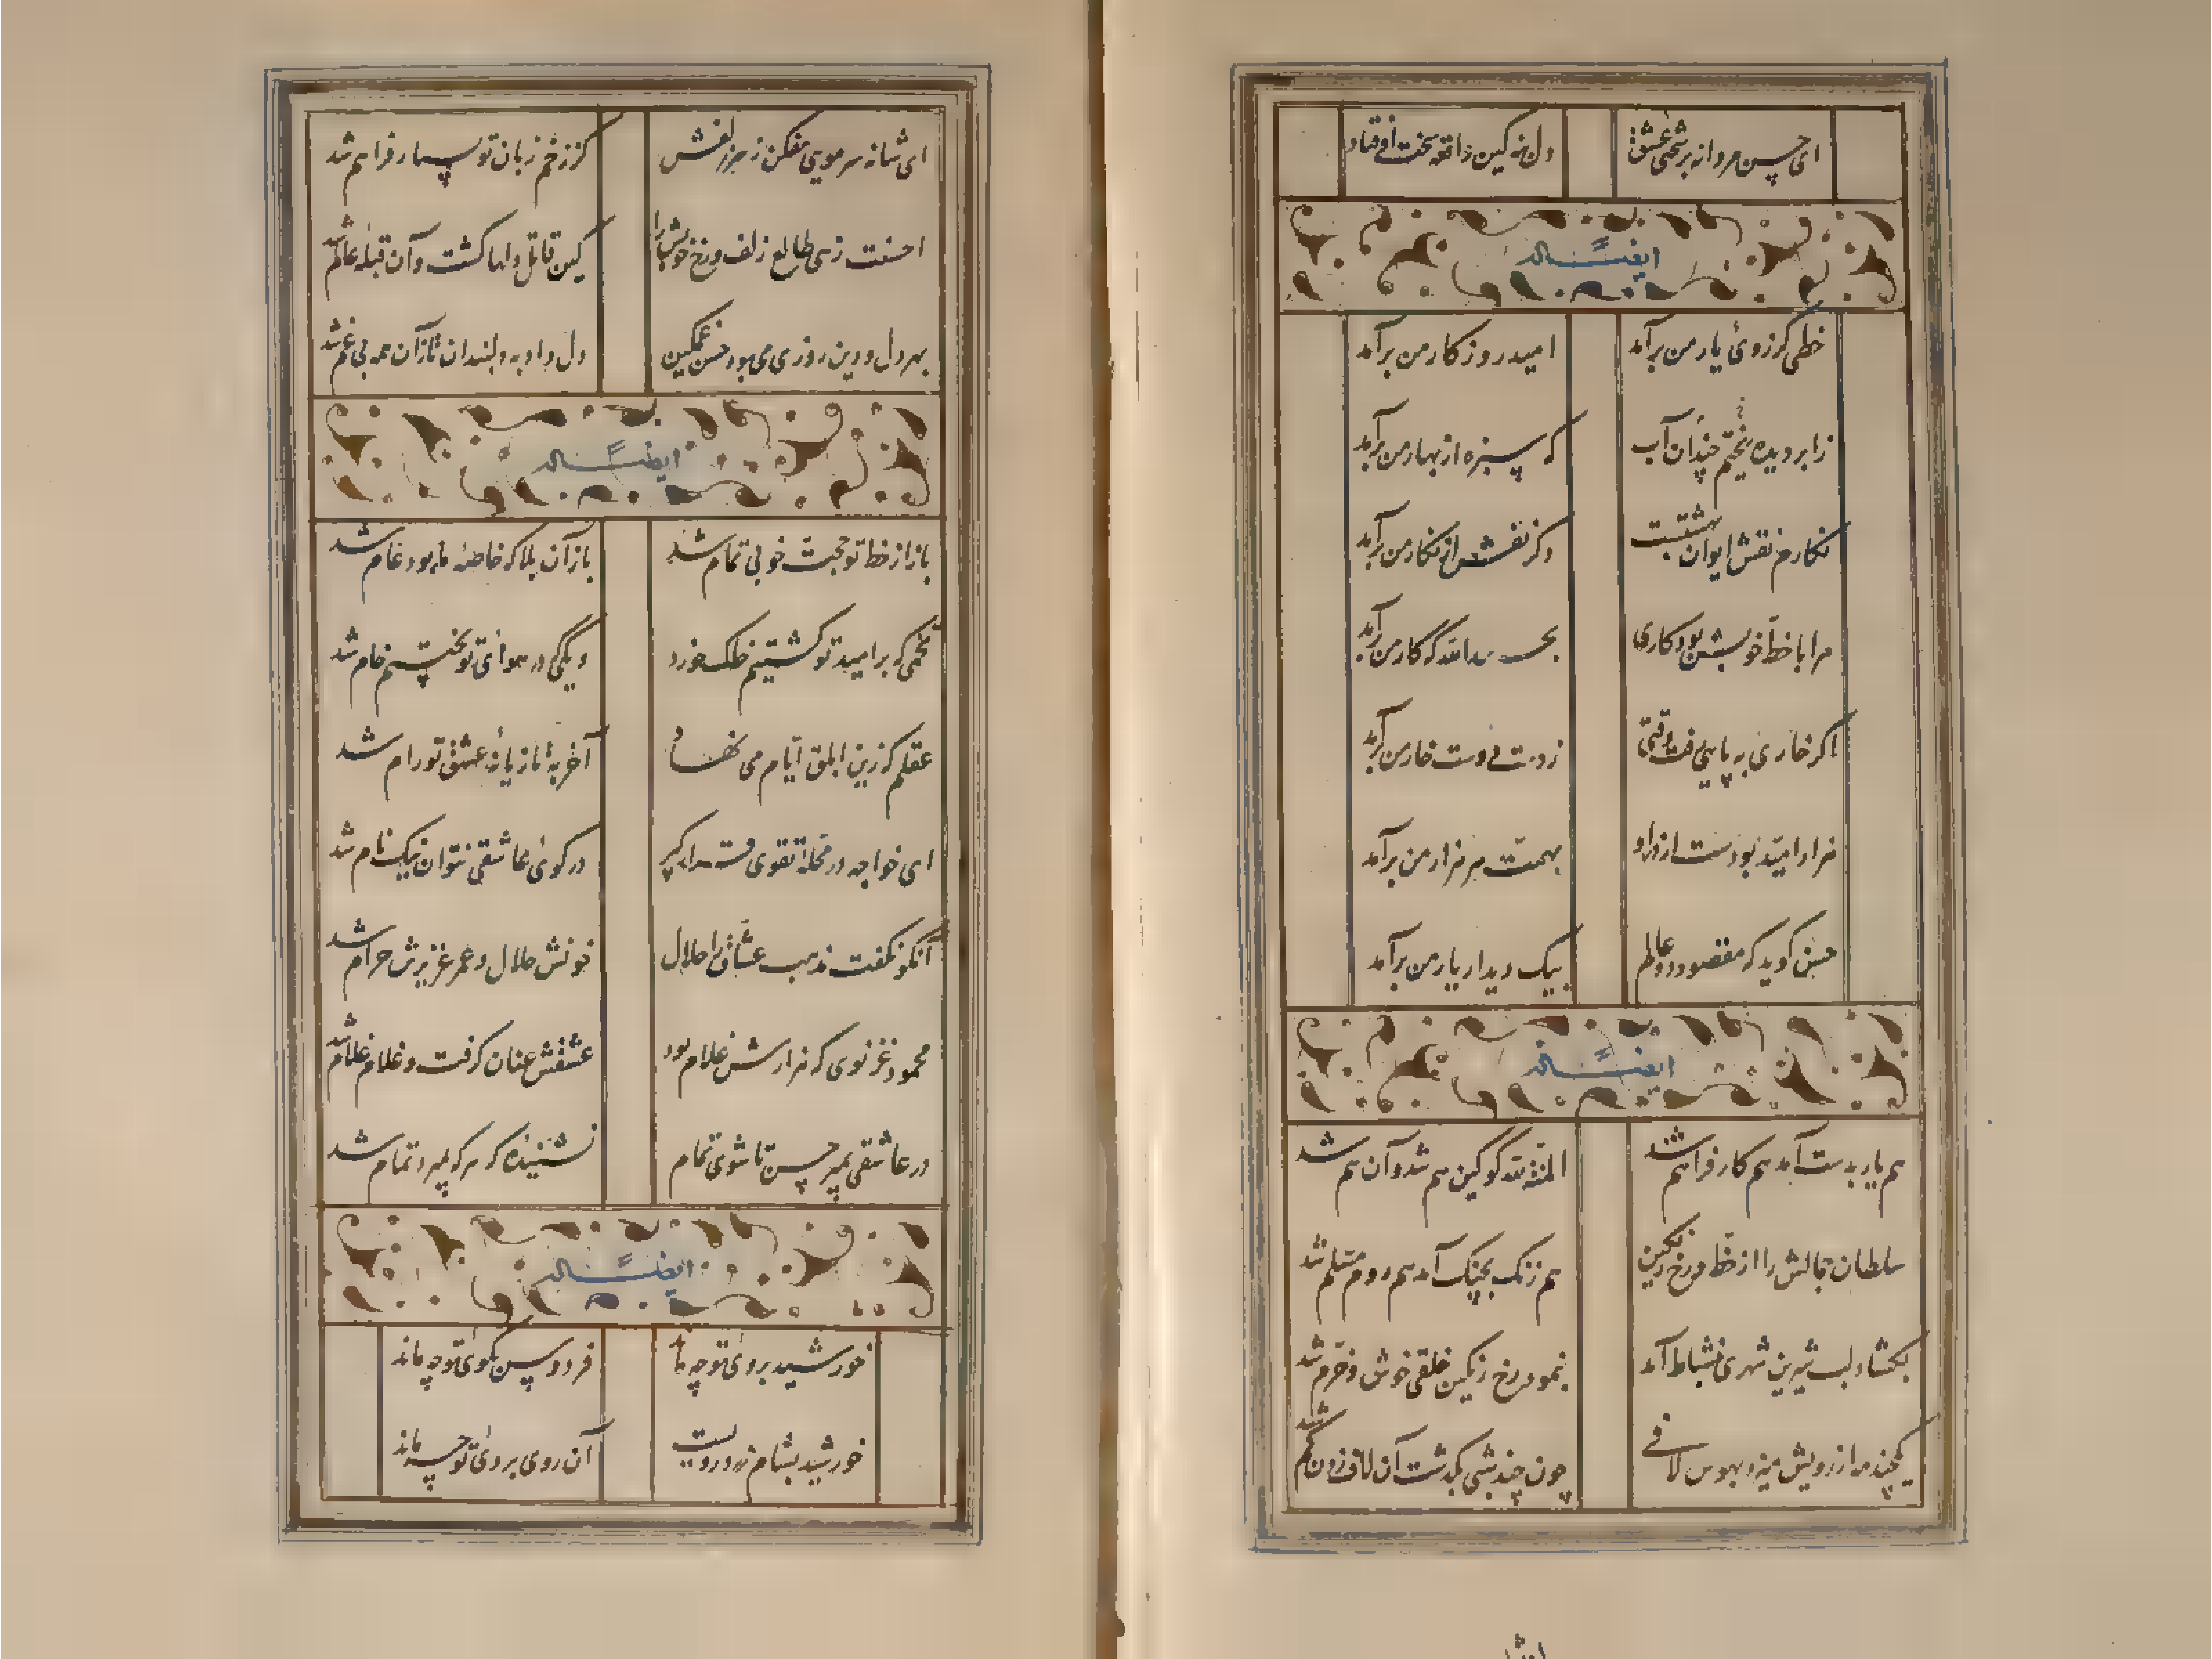 ای حسن مردانه بر سختی عشق دل نه کین واقعه سخت افتاد
ایضاً له
خطی کز روی یار من برآمد امید روزگار من برآمد
ز ابر دیده چندان آب که سبزه از بهار من برآمد
نگارم نقش ایوان بهشتست وگر نقش از نگار من برآمد
مرا با خط خوبش بود کاری بحمدالله که کار من برآمد
اگر خاری به پایی رفت وقتی ز دست دوست خار من برآمد
هزار امید بودست از در او بهمت هر هزار من برآمد
حسن گوید که مقصود دو عالم بیک دیدار یار من برآمد
ایضاً له
هم یار بدست آمد هم کار فراهم شد المنة لله کو کین هم شد و آن هم شد
سلطان جمالش را از خط و رخ رنگین هم زنگ بچنگ آمد هم روم مسلم شد
بگشاد لب شیرین شهری بنشاط آمد بنمود رخ رنگین خلقی خوش و خرم شد
یکچند مه از رویش میزد بهوس لافی چون چند شبی بگذشت آن لاف زدن کم شد
ای شانه سر مویی مفکن ز سر زلفش کز زخم زبان تو بسیار فراهم شد
احسنت زهی طالع زلف و رخ خوبش را کین قاتل دلها گشت و آن قبله عالم شد
بهر دل و دین روزی می‌بود حسن غمگین دل داد به دلبندان تا زان همه بی غم شد
ایضاً له
باز از خط تو حجت خوبی تمام شد باز آن بلا که خاصه ما بود عام شد
تخمی که بر امید تو کشتیم خاک خورد دیگی که در هوای تو پختیم خام شد
عقلم کزین ابلق ایام می آخر به تازیانه عشق تو رام شد
ای خواجه در محله تقوی قدم در کوی عاشقی نتوان نیک نام شد
آنکو نگفت مذهب عشاق را حلال خونش حلال و عمر عزیزش حرام شد
محمود غزنوی که هزارش غلام بود عشقش عنان گرفت و غلام غلام شد
در عاشقی بمیر حسن تا شوی تمام نشنیده که هر که بمیرد تمام شد
ایضاً له
خورشید بروی تو چه ماند فردوس بکوی تو چه ماند
خورشید بشام زردرویست آن روی بروی تو چه ماند